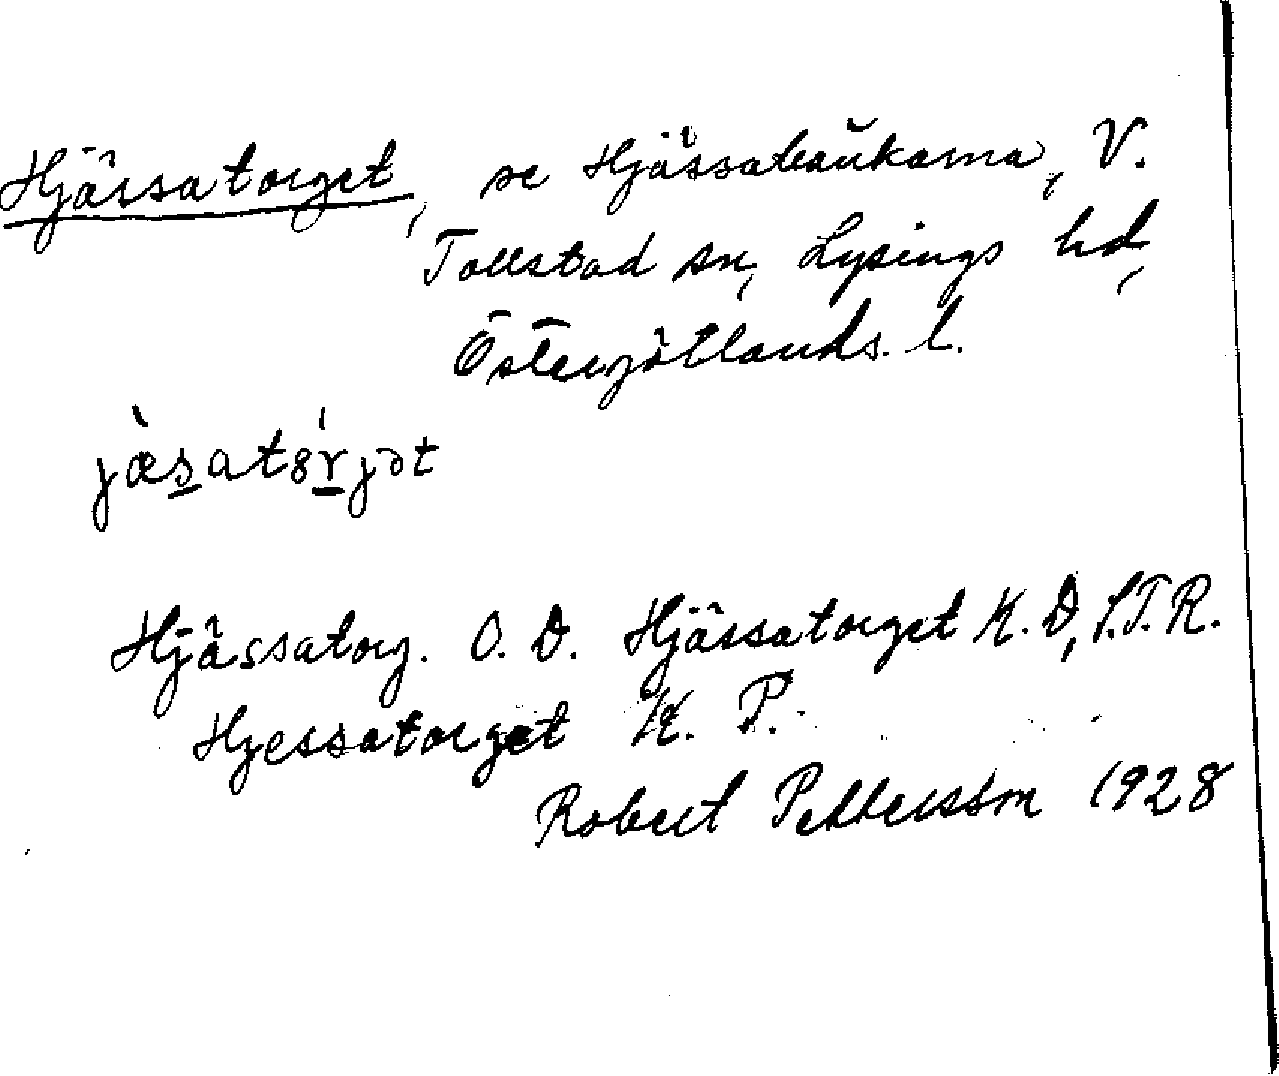 Hjässatorget, se Hjässabackarna, V.
Tollstad sn, Lysings hd,
Östergötlands. l.
jæsatȣrjǝt
Hjässatorg. O. D. Hjässatorget K. D, S.T.R.
Hjessatorget K. P.
Robert Pettersson 1928